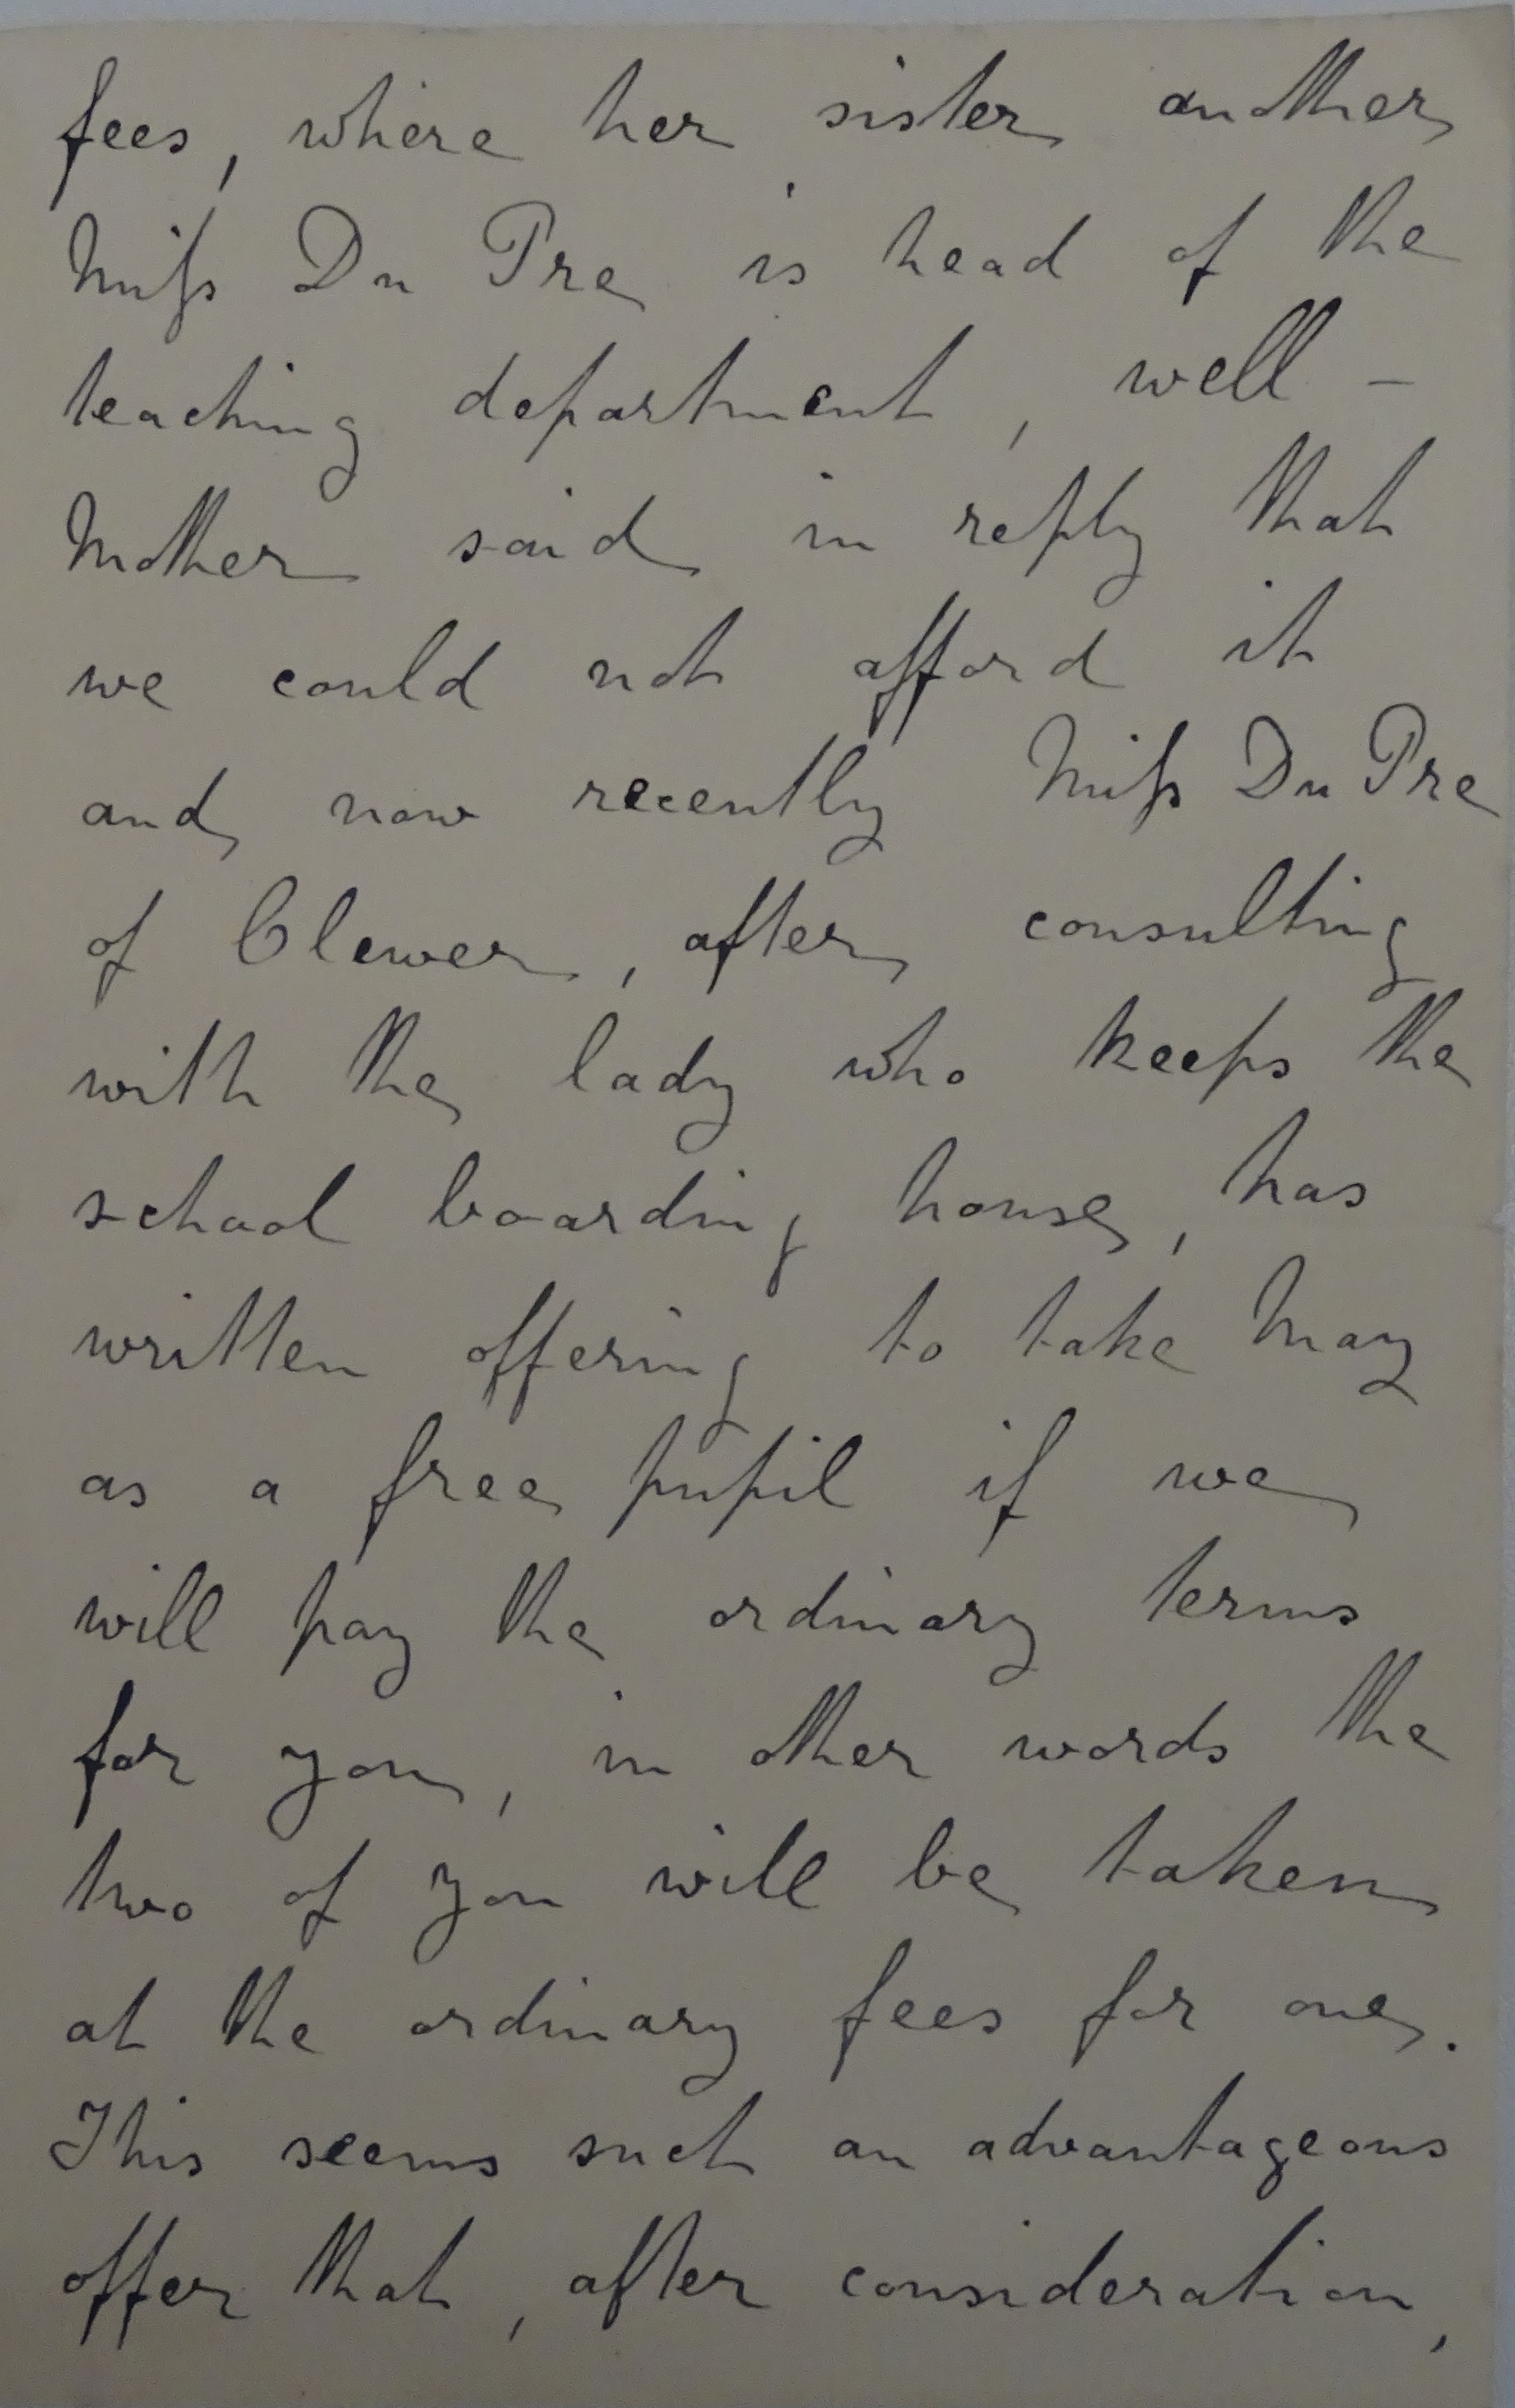 fees, where her sister another
Miss Du Pre is head of the
teaching department, well -
Mother said in reply that
we could not afford it
and now recently Miss Du Pre
of Clewer, after consulting
with the lady who keeps the
school boarding house, has
written offering to take May
as a free pupil if we
will pay the ordinary terms
for you, in other words the
two of you will be taken
at the ordinary fees for one.
This seems such an advantageous
offer that, after consideration,